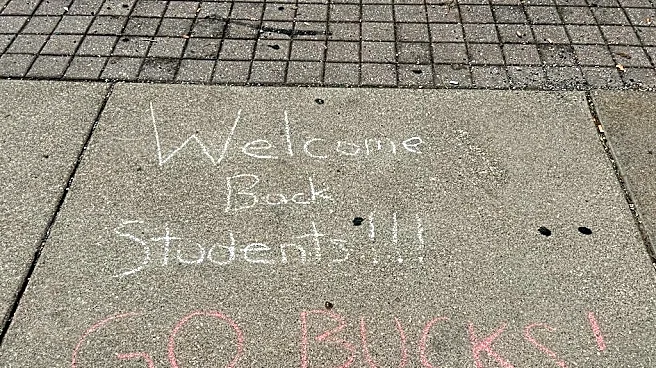 Welcome
Back
Students!!!
GO BUCKS!